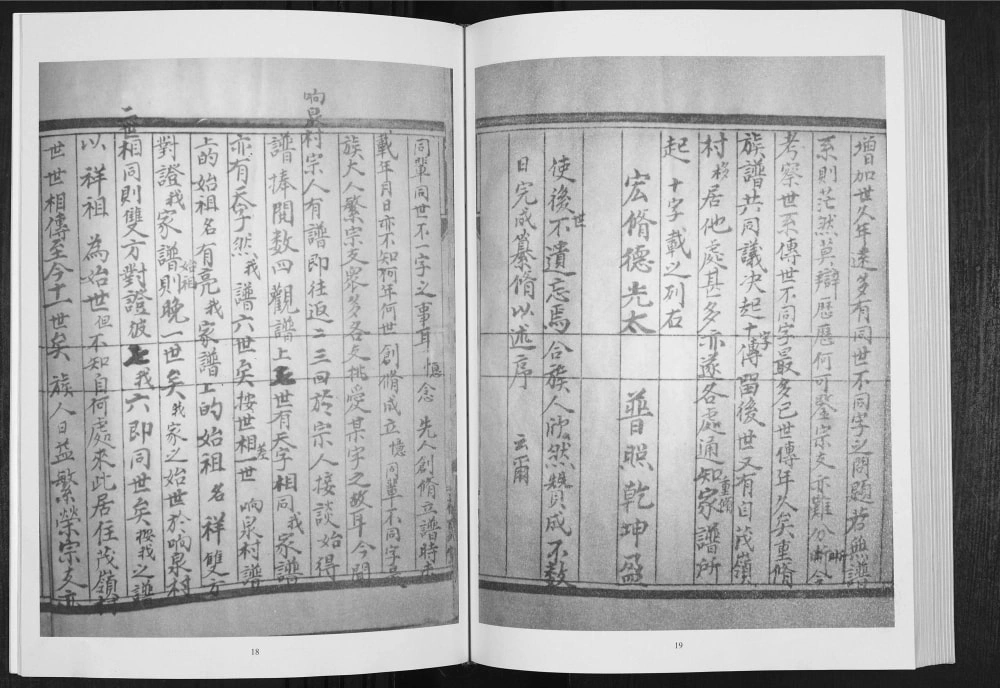 同輩同世不一字之事耳 憶念 先人創脩立譜時未
載年月日亦不知何年何世創脩成立憶同輩不同字是
族大人繁宗支衆多各支祧愛某字之故耳今聞
响泉村宗人有譜即往返二三回於宗人接談始得
譜捧閱数四觀譜上七世有天字相同我家譜
亦有天字然我譜六世矣按世相差世 响泉村譜
上的始祖名有亮我家譜上的始祖名祥雙方
對證我家譜始祖則晚一世矣我家之始世於响泉村
二世相同則雙方對證彼七我六即同世矣按我之譜
以祥祖為始世但不知自何處來此居住茂嶺村
世世相傳至今十一世矣族人日益繁榮宗支亦
18
增加世久年遠多有同世不同字之問題若無譜
系則茫然莫辯歷歷何可鑒宗支亦難分晰今
考察世系傳世不同字最多已世傳年久矣重脩
族譜共同議决起十字傳留後世又有自茂嶺
村移居他處甚多亦遂各處通知重脩家譜所
起十字載之列右
宏脩德光太 普照乾坤盈
使後世不遺忘焉合族人欣然贊成不数
日完成纂脩以述序 云爾
19